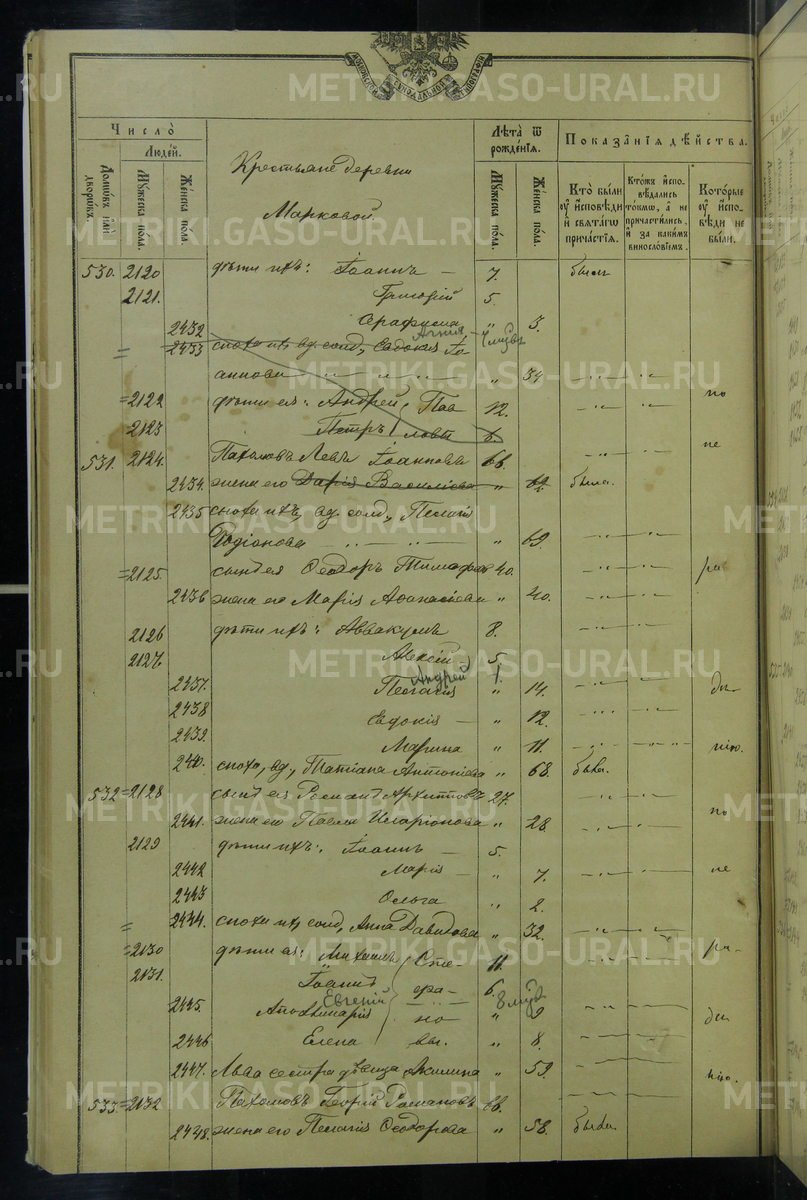 Число̀
Людей.
Домовъ или дворовъ.
Мужеска пола.
Женска пола.
Крестьяне деревни
Марковой.
Лѣта ѿ рожденїѧ.
Мужеска пола.
Женска пола.
Показанїѧ дѣйства.
Кто были оу исповѣди и свѧтагѡ причастїѧ.
Ктожъ исповѣдались токмѡ, а не причастились, и за какимъ винословїемъ.
Которые оу исповѣди не были.
530. 2120 дѣти ихъ: Іоаннъ — 7. были
2121. Григорій 5.
2432 Серафима " 3.
2433 сноха ихъ, вд. солд., Евдокія Іо-
аннова " 34
=2122 дѣти ея: Андрей Пав 12. по
2123 Петръ ловы 6.
531. 2124. Пахомовъ Левъ Іоанновъ 66. не
2434. жена его Дарія Василіева " была.
2435 сноха ихъ, вд. солд., Пелагія
Родіонова " 69.
=2125. сынъ ея Ѳеодоръ Тимофеевъ 40. ра
2436 жена его Марія Аѳанасіева " 40.
2126 дѣти ихъ: Аввакумъ 8.
2127. Алексій 5.
Андрей 1.
2437. Пелагія " 14. ді-
2438 Евдокія — " 12.
2439. Марина " 11. нію.
2440. сноха, вд., Татіана Антоніева " 68. была.
532 =2128 сынъ ея Романъ Архипповъ 27.
2441. жена его Павла Иларіонова " 28 по
2129 дѣти ихъ: Іоаннъ — 5.
2442 Марія — " 7. не
2443 Ольга " 2.
2444. сноха их, солд., Анна Давидова " 32.
=2130 дѣти ея: Михаилъ Сте- 11. ра-
2131. Іоаннъ фа- 6.
Евгеній
2445. Аполлинарія но- " 9 ді
2446 Елена вы. " 8.
2447. Льва сестра дѣвица Акилина " 59. нію.
533 =2132 Пахомовъ Георгій Романовъ 66.
2448. жена его Пелагія Ѳеодорова " 58. были
METRIKI.GASO-URAL.RU